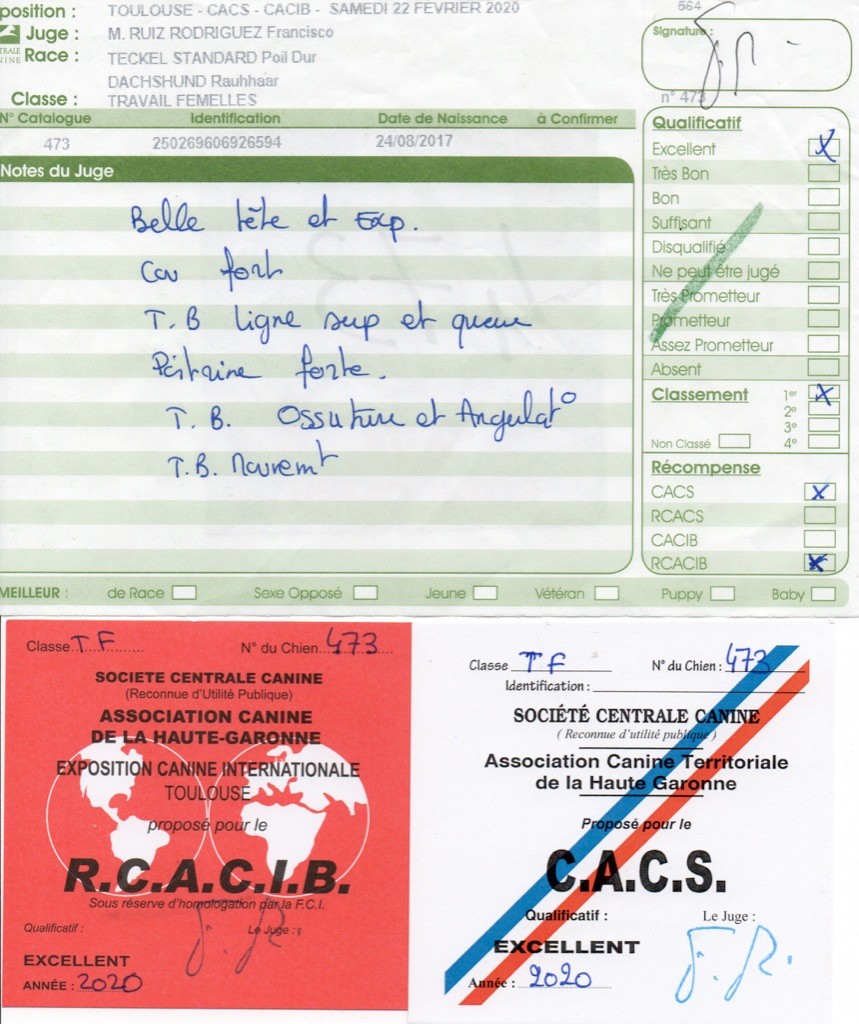 position : TOULOUSE - CACS - CACIB - SAMEDI 22 FÉVRIER 2020 564
Juge : M. RUIZ RODRIGUEZ Francisco
Race : TECKEL STANDARD Poil Dur
DACHSHUND Rauhhaar
Classe : TRAVAIL FEMELLES
Signature :
n° 473
N° Catalogue Identification Date de Naissance à Confirmer
473 250269606926594 24/08/2017
Notes du Juge
Belle tête et Exp.
Cou fort
T.B ligne sup et queue
Poitrine forte.
T.B. Ossature et Angulat°
T.B. Mouvemt
Qualificatif
Excellent X
Très Bon
Bon
Suffisant
Disqualifié
Ne peut être jugé
Très Prometteur
Prometteur
Assez Prometteur
Absent
Classement 1er X
2e
3e
Non Classé 4e
Récompense
CACS X
RCACS
CACIB
RCACIB X
MEILLEUR : de Race Sexe Opposé Jeune Vétéran Puppy Baby
Classe TF N° du Chien 473
SOCIETE CENTRALE CANINE
(Reconnue d'Utilité Publique)
ASSOCIATION CANINE
DE LA HAUTE-GARONNE
EXPOSITION CANINE INTERNATIONALE
TOULOUSE
proposé pour le
R.C.A.C.I.B.
Sous réserve d'homologation par la F.C.I.
Qualificatif : Le Juge :
EXCELLENT
ANNÉE : 2020
Classe TF N° du Chien : 473
Identification :
SOCIÉTÉ CENTRALE CANINE
( Reconnue d'utilité publique )
Association Canine Territoriale
de la Haute Garonne
Proposé pour le
C.A.C.S.
Qualificatif : Le Juge :
EXCELLENT
Année : 2020
F. R.